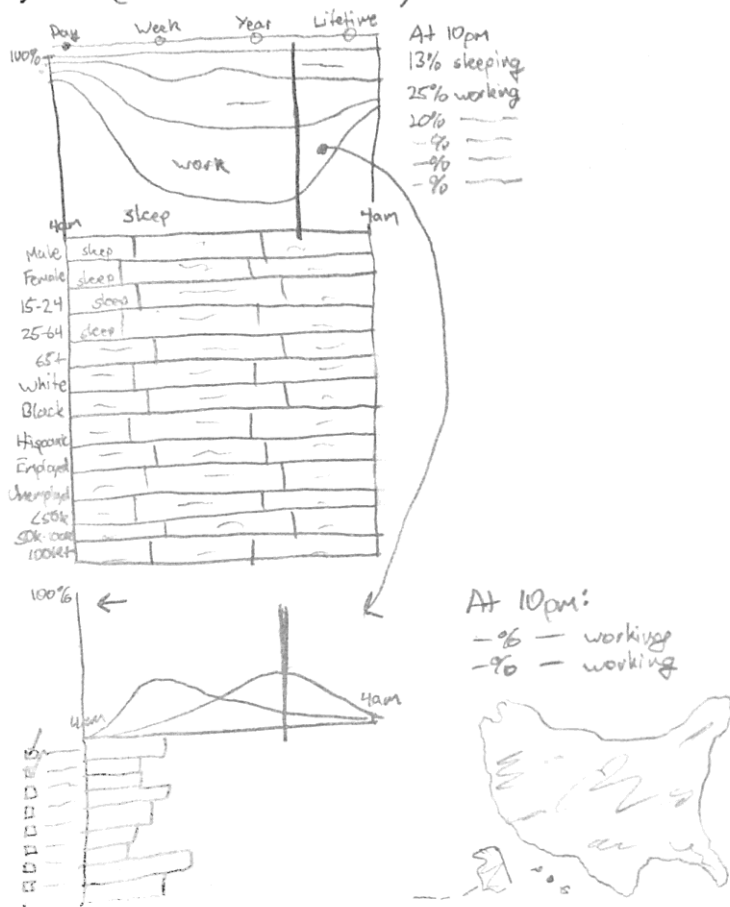 Day Week Year Lifetime
100%
work
sleep
4am 4am
At 10pm
13% sleeping
25% working
20%
-%
-%
-%
Male sleep
Female sleep
15-24 sleep
25-64 sleep
65+
White
Black
Hispanic
Employed
Unemployed
<50k
50k-100k
100k+
100%
4am 4am
At 10pm:
-% — working
-% — working